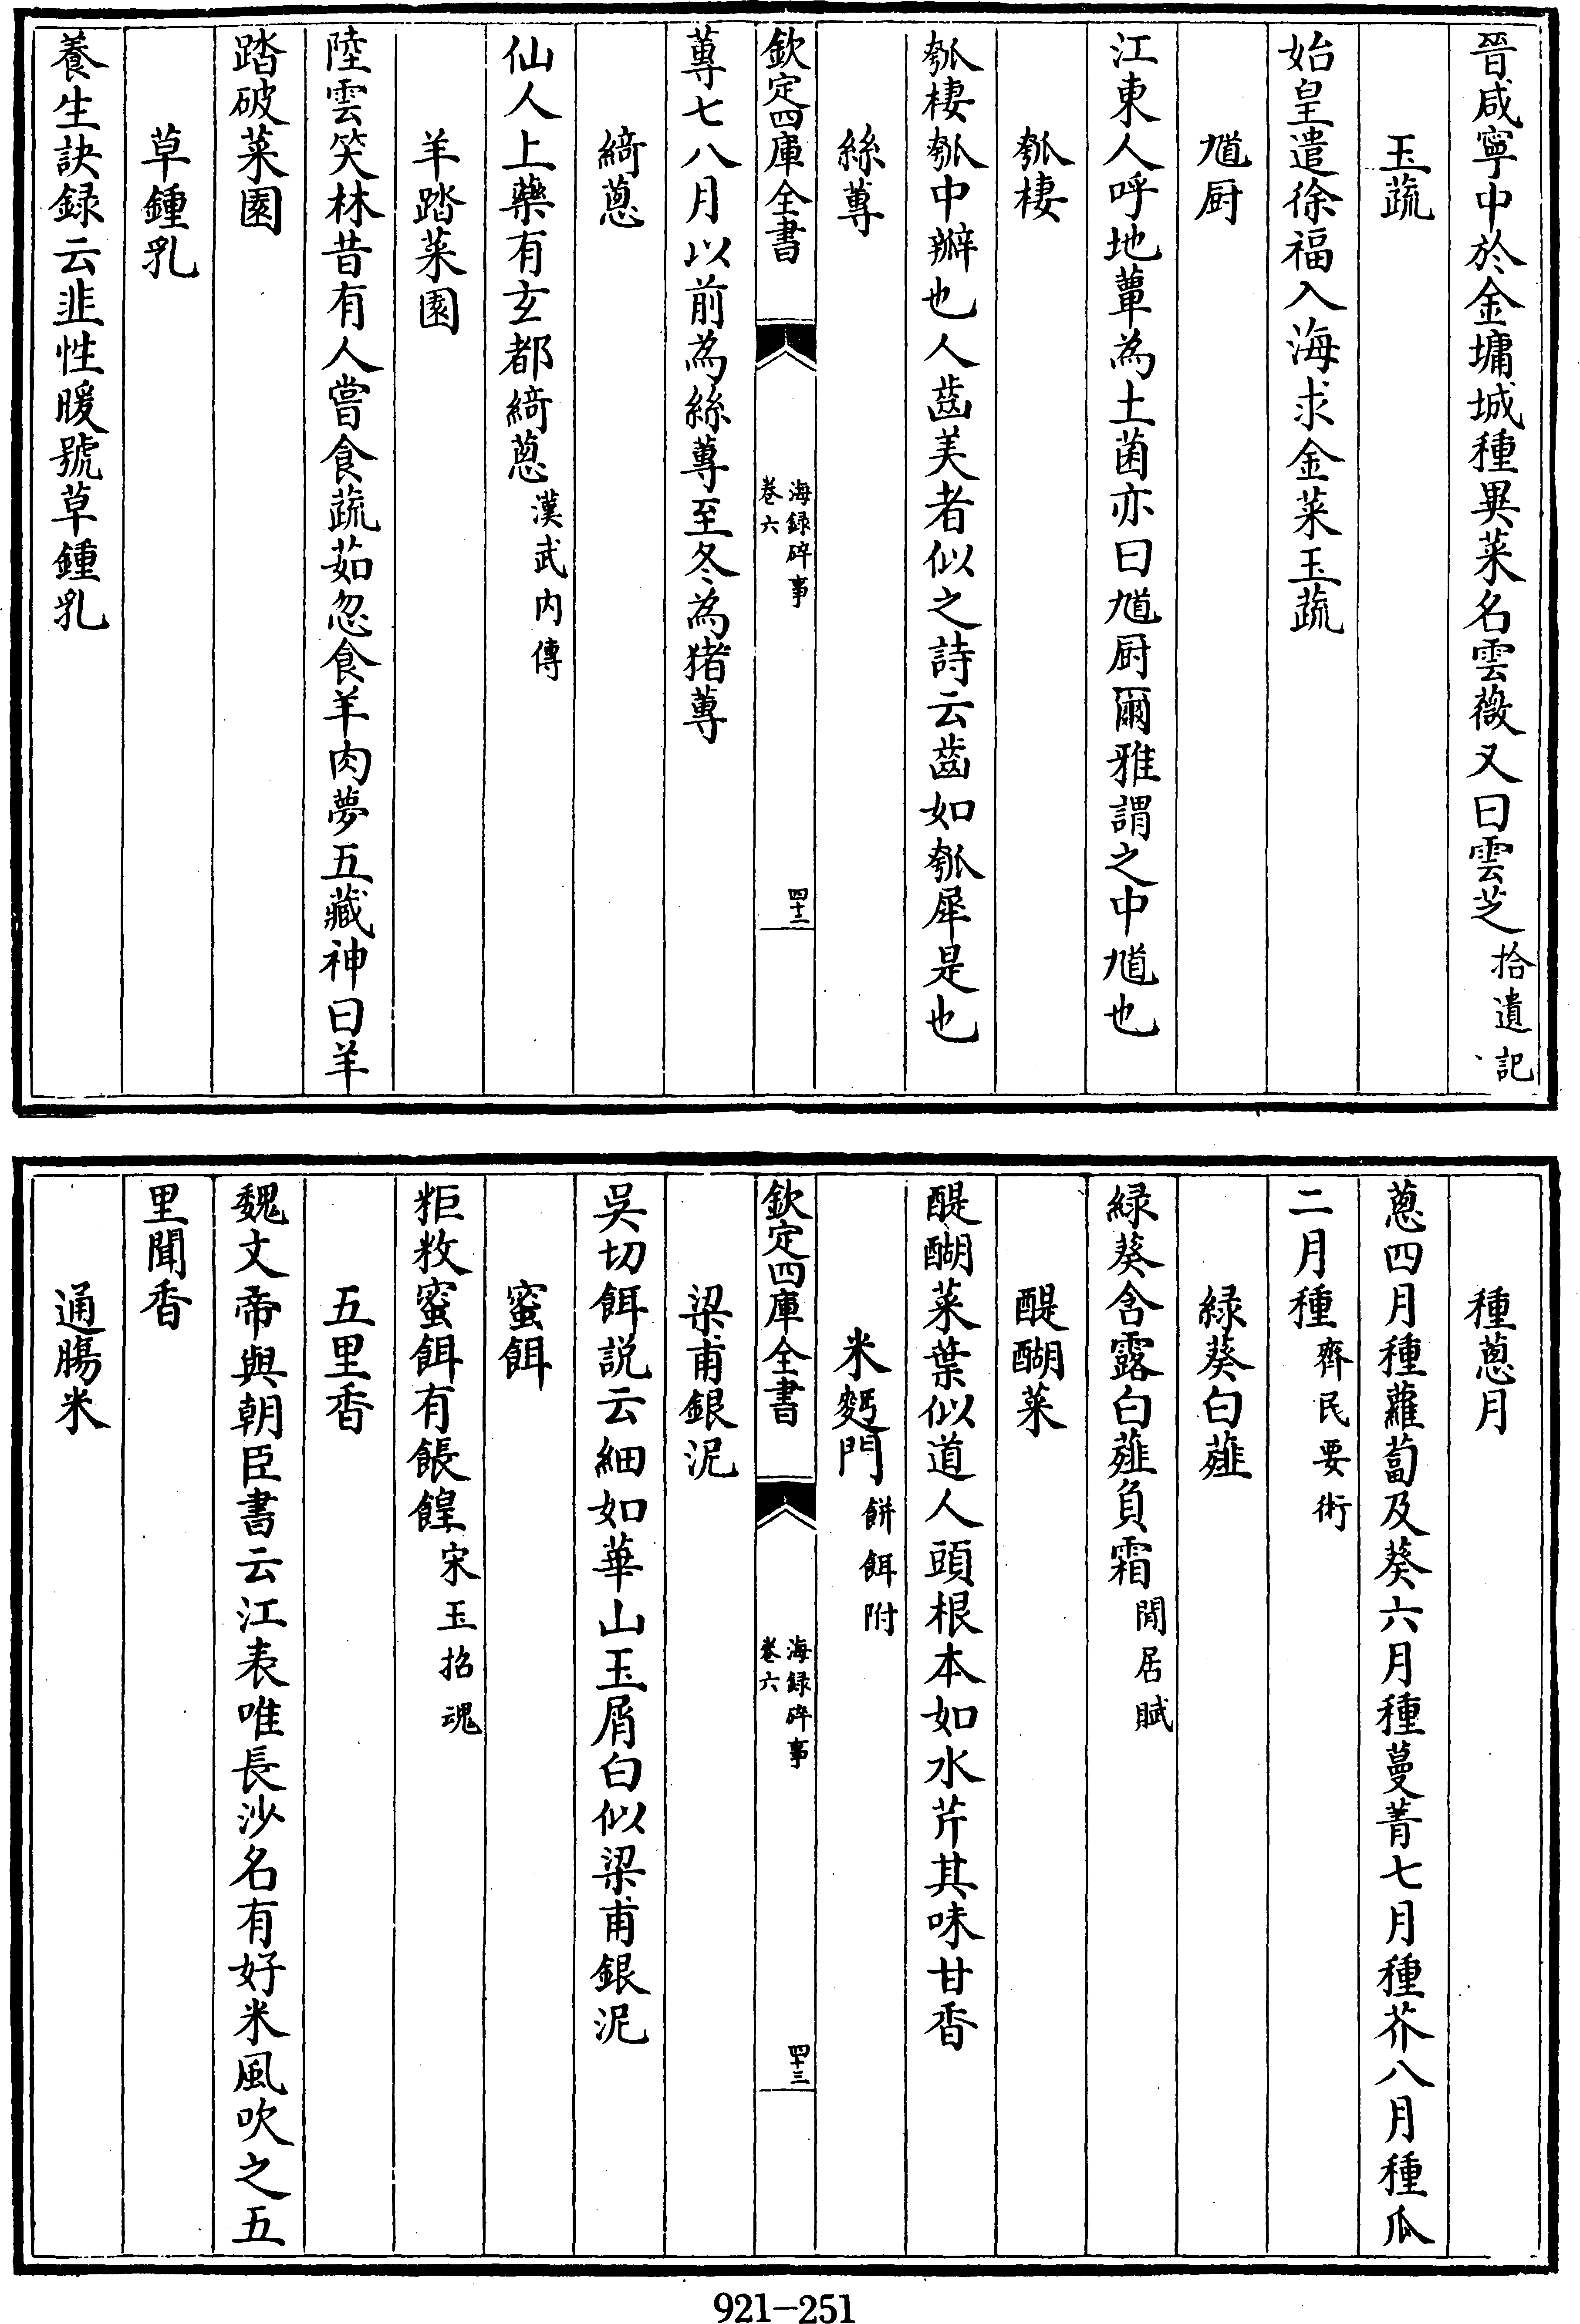 晉咸寧中於金墉城種異菜名雲薇又曰雲芝拾遺記
玉蔬
始皇遣徐福入海求金菜玉蔬
馗厨
江東人呼地蕈為土菌亦曰馗厨爾雅謂之中馗也
瓠棲
瓠棲瓠中瓣也人齒美者似之詩云齒如瓠犀是也
絲蓴
欽定四庫全書
海録碎事
卷六
四十二
蓴七八月以前為絲蓴至冬為猪蓴
綺蔥
仙人上藥有玄都綺蔥漢武内傳
羊踏菜園
陸雲笑林昔有人嘗食蔬茹忽食羊肉夢五藏神曰羊
踏破菜園
草鍾乳
養生訣録云韭性暖號草鍾乳
種蔥月
蔥四月種蘿蔔及葵六月種蔓菁七月種芥八月種瓜
二月種齊民要術
緑葵白薤
緑葵含露白薤負霜閒居賦
醍醐菜
醍醐菜葉似道人頭根本如水芹其味甘香
米麫門餅餌附
欽定四庫全書
海録碎事
卷六
四十三
梁甫銀泥
吳切餌説云細如華山玉屑白似梁甫銀泥
蜜餌
粔籹蜜餌有餦餭宋玉招魂
五里香
魏文帝與朝臣書云江表唯長沙名有好米風吹之五
里聞香
通腸米
921-251